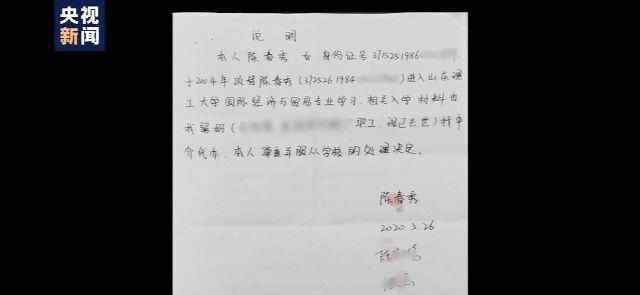 央视
新闻
说明
本人陈春秀 女 身份证号 3715251986
于2004年顶替陈春秀(3725261984)进入山东理
工大学国际经济与贸易专业学习,相关入学材料由
我舅妈(职工,现已去世)找中
介代办,本人尊重并服从学校的处理决定。
陈春秀
2020.3.26